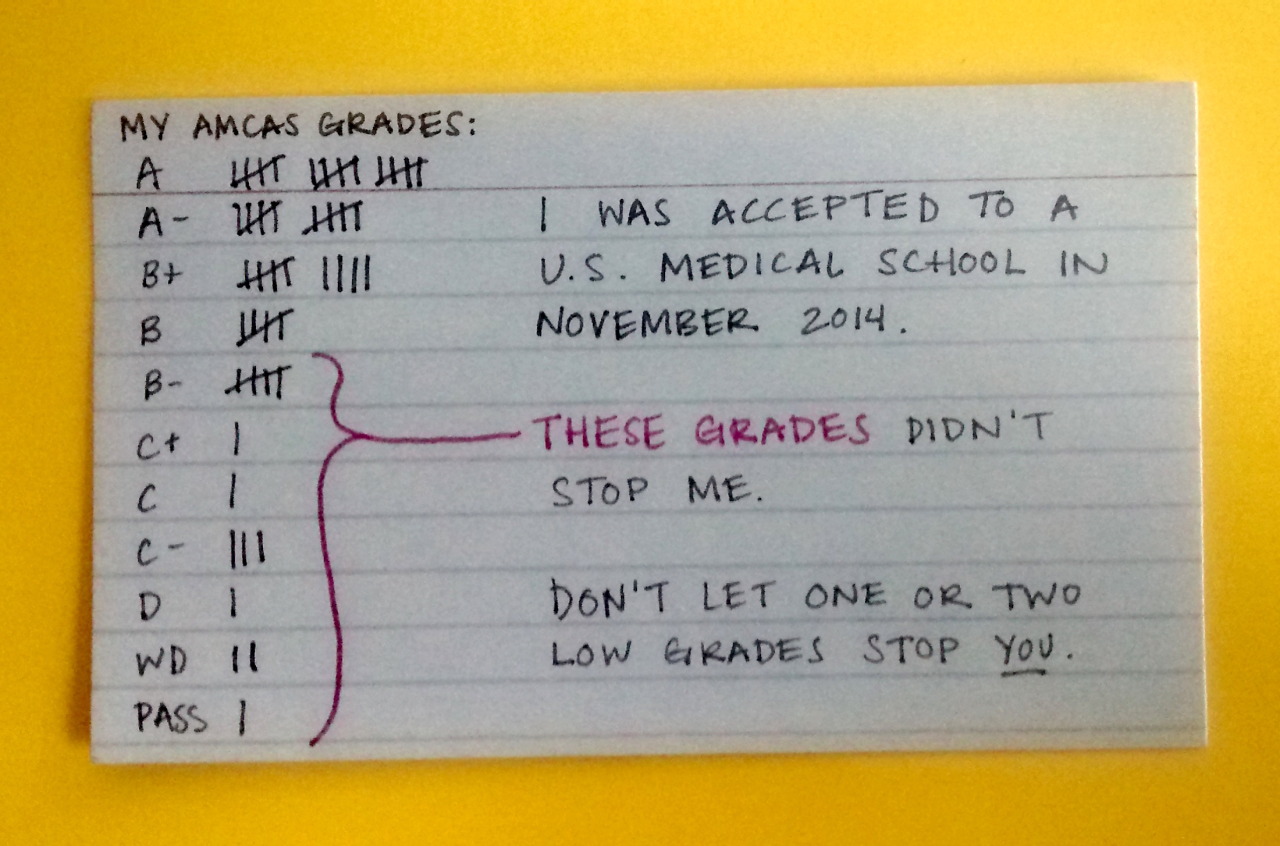 MY AMCAS GRADES:
A 卌 卌 卌
A- 卌 卌
B+ 卌 ||||
B 卌
B- 卌
C+ |
C |
C- |||
D |
WD ||
PASS |
I WAS ACCEPTED TO A
U.S. MEDICAL SCHOOL IN
NOVEMBER 2014.
THESE GRADES DIDN'T
STOP ME.
DON'T LET ONE OR TWO
LOW GRADES STOP YOU.